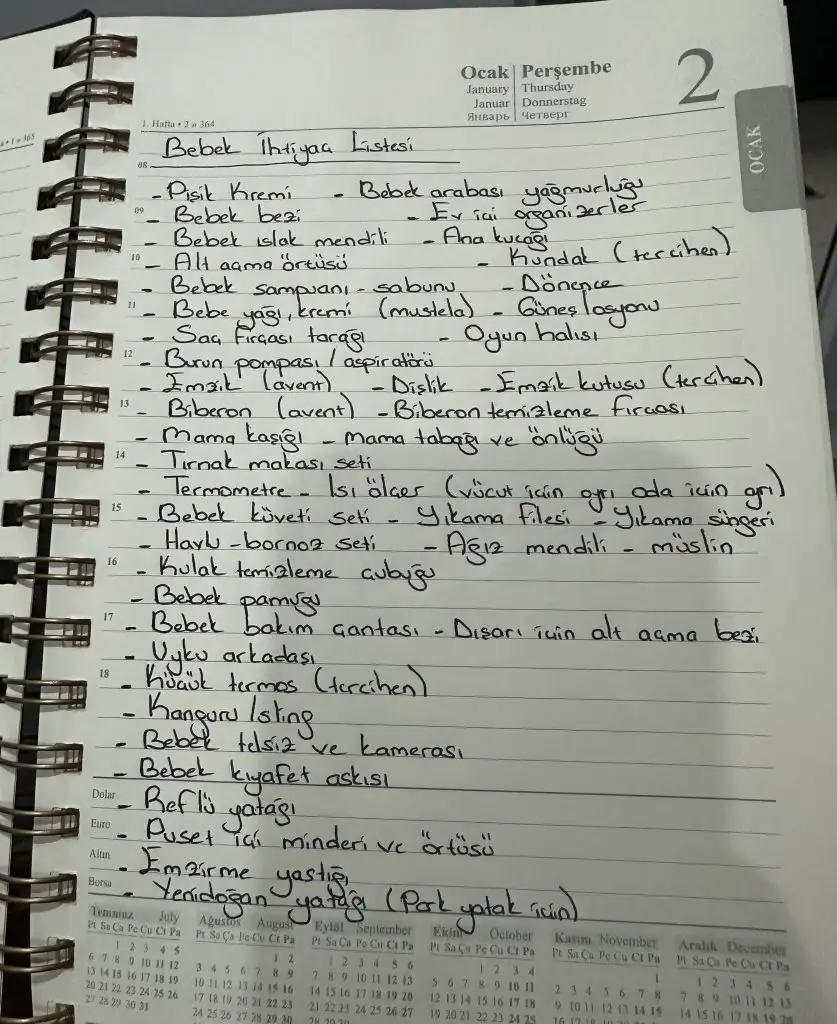 Ocak | Perşembe 2
January | Thursday
Januar | Donnerstag
Январь | Четверг
1. Hafta • 2 » 364
OCAK
Bebek İhtiyaç Listesi
08
- Pişik Kremi - Bebek arabası yağmurluğu
09 - Bebek bezi - Ev içi organizerler
- Bebek ıslak mendili - Ana kucağı
10 - Alt açma örtüsü - Kundak (tercihen)
- Bebek şampuanı - sabunu - Dönence
11 - Bebe yağı, kremi (mustela) - Güneş losyonu
- Saç Fırçası tarağı - Oyun halısı
12 - Burun pompası / aspiratörü
- Emzik (avent) - Dişlik - Emzik kutusu (tercihen)
13 - Biberon (avent) - Biberon temizleme fırçası
- Mama kaşığı - mama tabağı ve önlüğü
14 - Tırnak makası seti
- Termometre - Isı ölçer (vücut için ayrı oda için ayrı)
15 - Bebek küveti seti - Yıkama filesi - Yıkama süngeri
- Havlu - bornoz seti - Ağız mendili - müslin
16 - Kulak temizleme çubuğu
- Bebek pamuğu
17 - Bebek bakım çantası - Dışarı için alt açma bezi
- Uyku arkadaşı
18 - Küçük termos (tercihen)
- Kanguru / sling
- Bebek telsiz ve kamerası
- Bebek kıyafet askısı
Dolar - Reflü yatağı
Euro - Puset içi minderi ve örtüsü
Altın - Emzirme yastığı
Borsa - Yenidoğan yatağı (Park yatak için)
Temmuz July Ağustos August Eylül September Ekim October Kasım November Aralık December
Pt Sa Ça Pe Cu Ct Pa Pt Sa Ça Pe Cu Ct Pa Pt Sa Ça Pe Cu Ct Pa Pt Sa Ça Pe Cu Ct Pa Pt Sa Ça Pe Cu Ct Pa Pt Sa Ça Pe Cu Ct Pa
1 2 3 4 5 1 2 1 2 3 4 5 6 1 2 3 4 1 1 2 3 4 5 6
6 7 8 9 10 11 12 3 4 5 6 7 8 9 7 8 9 10 11 12 13 5 6 7 8 9 10 11 2 3 4 5 6 7 8 7 8 9 10 11 12 13
13 14 15 16 17 18 19 10 11 12 13 14 15 16 14 15 16 17 18 19 20 12 13 14 15 16 17 18 9 10 11 12 13 14 15 14 15 16 17 18 19 20
20 21 22 23 24 25 26 17 18 19 20 21 22 23 21 22 23 24 25 26 27 19 20 21 22 23 24 25
27 28 29 30 31 24 25 26 27 28 29 30 28 29 30